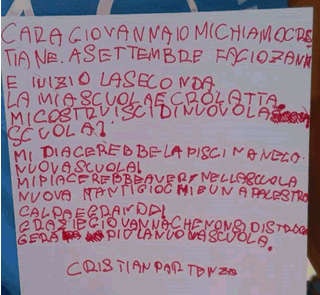 CARA GIOVANNA IO MI CHIAMO CRIS
TIANE. A SETTEMBRE FACIO 7 ANNI
E INIZIO LA SECONDA.
LA MIA SCUOLA E CROLATTA
MI COSTRUISCI DI NUOVO LA
SCUOLA?
MI DIACEREBBE LA PISCINA NELA
NUOVA SCUOLA!
MI PIACEREBBE AVER NELLA SCUOLA
NUOVA TANTI GIOCHI E UNA PALESTRA
CALDA E GRANDE!
GRAZIE GIOVANNA CHE NON SI DISTRUG
GERÀ PIÙ LA NUOVA SCUOLA.
CRISTIAN PARTENZO